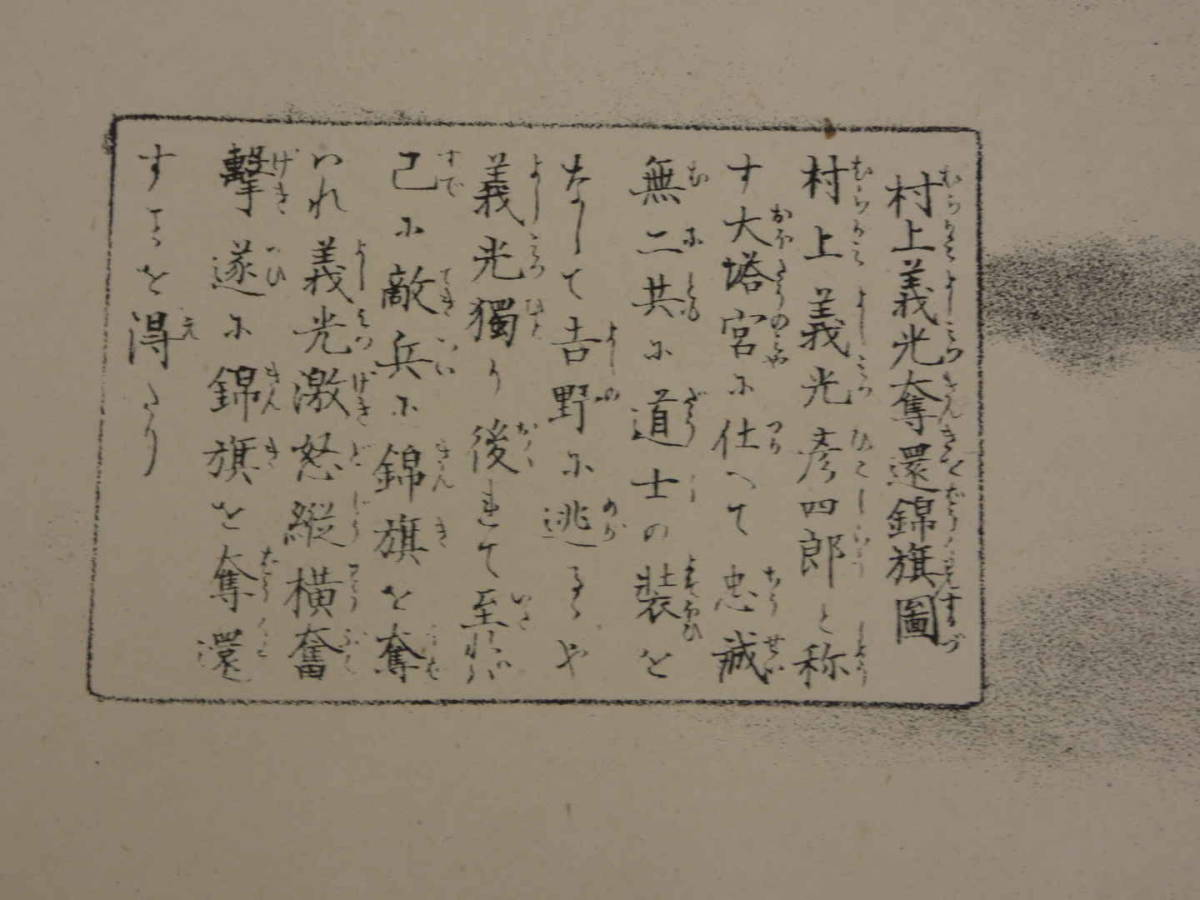 村上義光奪還錦旗圖
村上義光彦四郎と称
す大塔宮に仕へて忠誠
無二共に道士の装を
なして吉野に逃るゝや
義光獨り後れて至れバ
己に敵兵に錦旗を奪
はれ義光激怒縦横奮
撃遂に錦旗を奪還
することを得たり